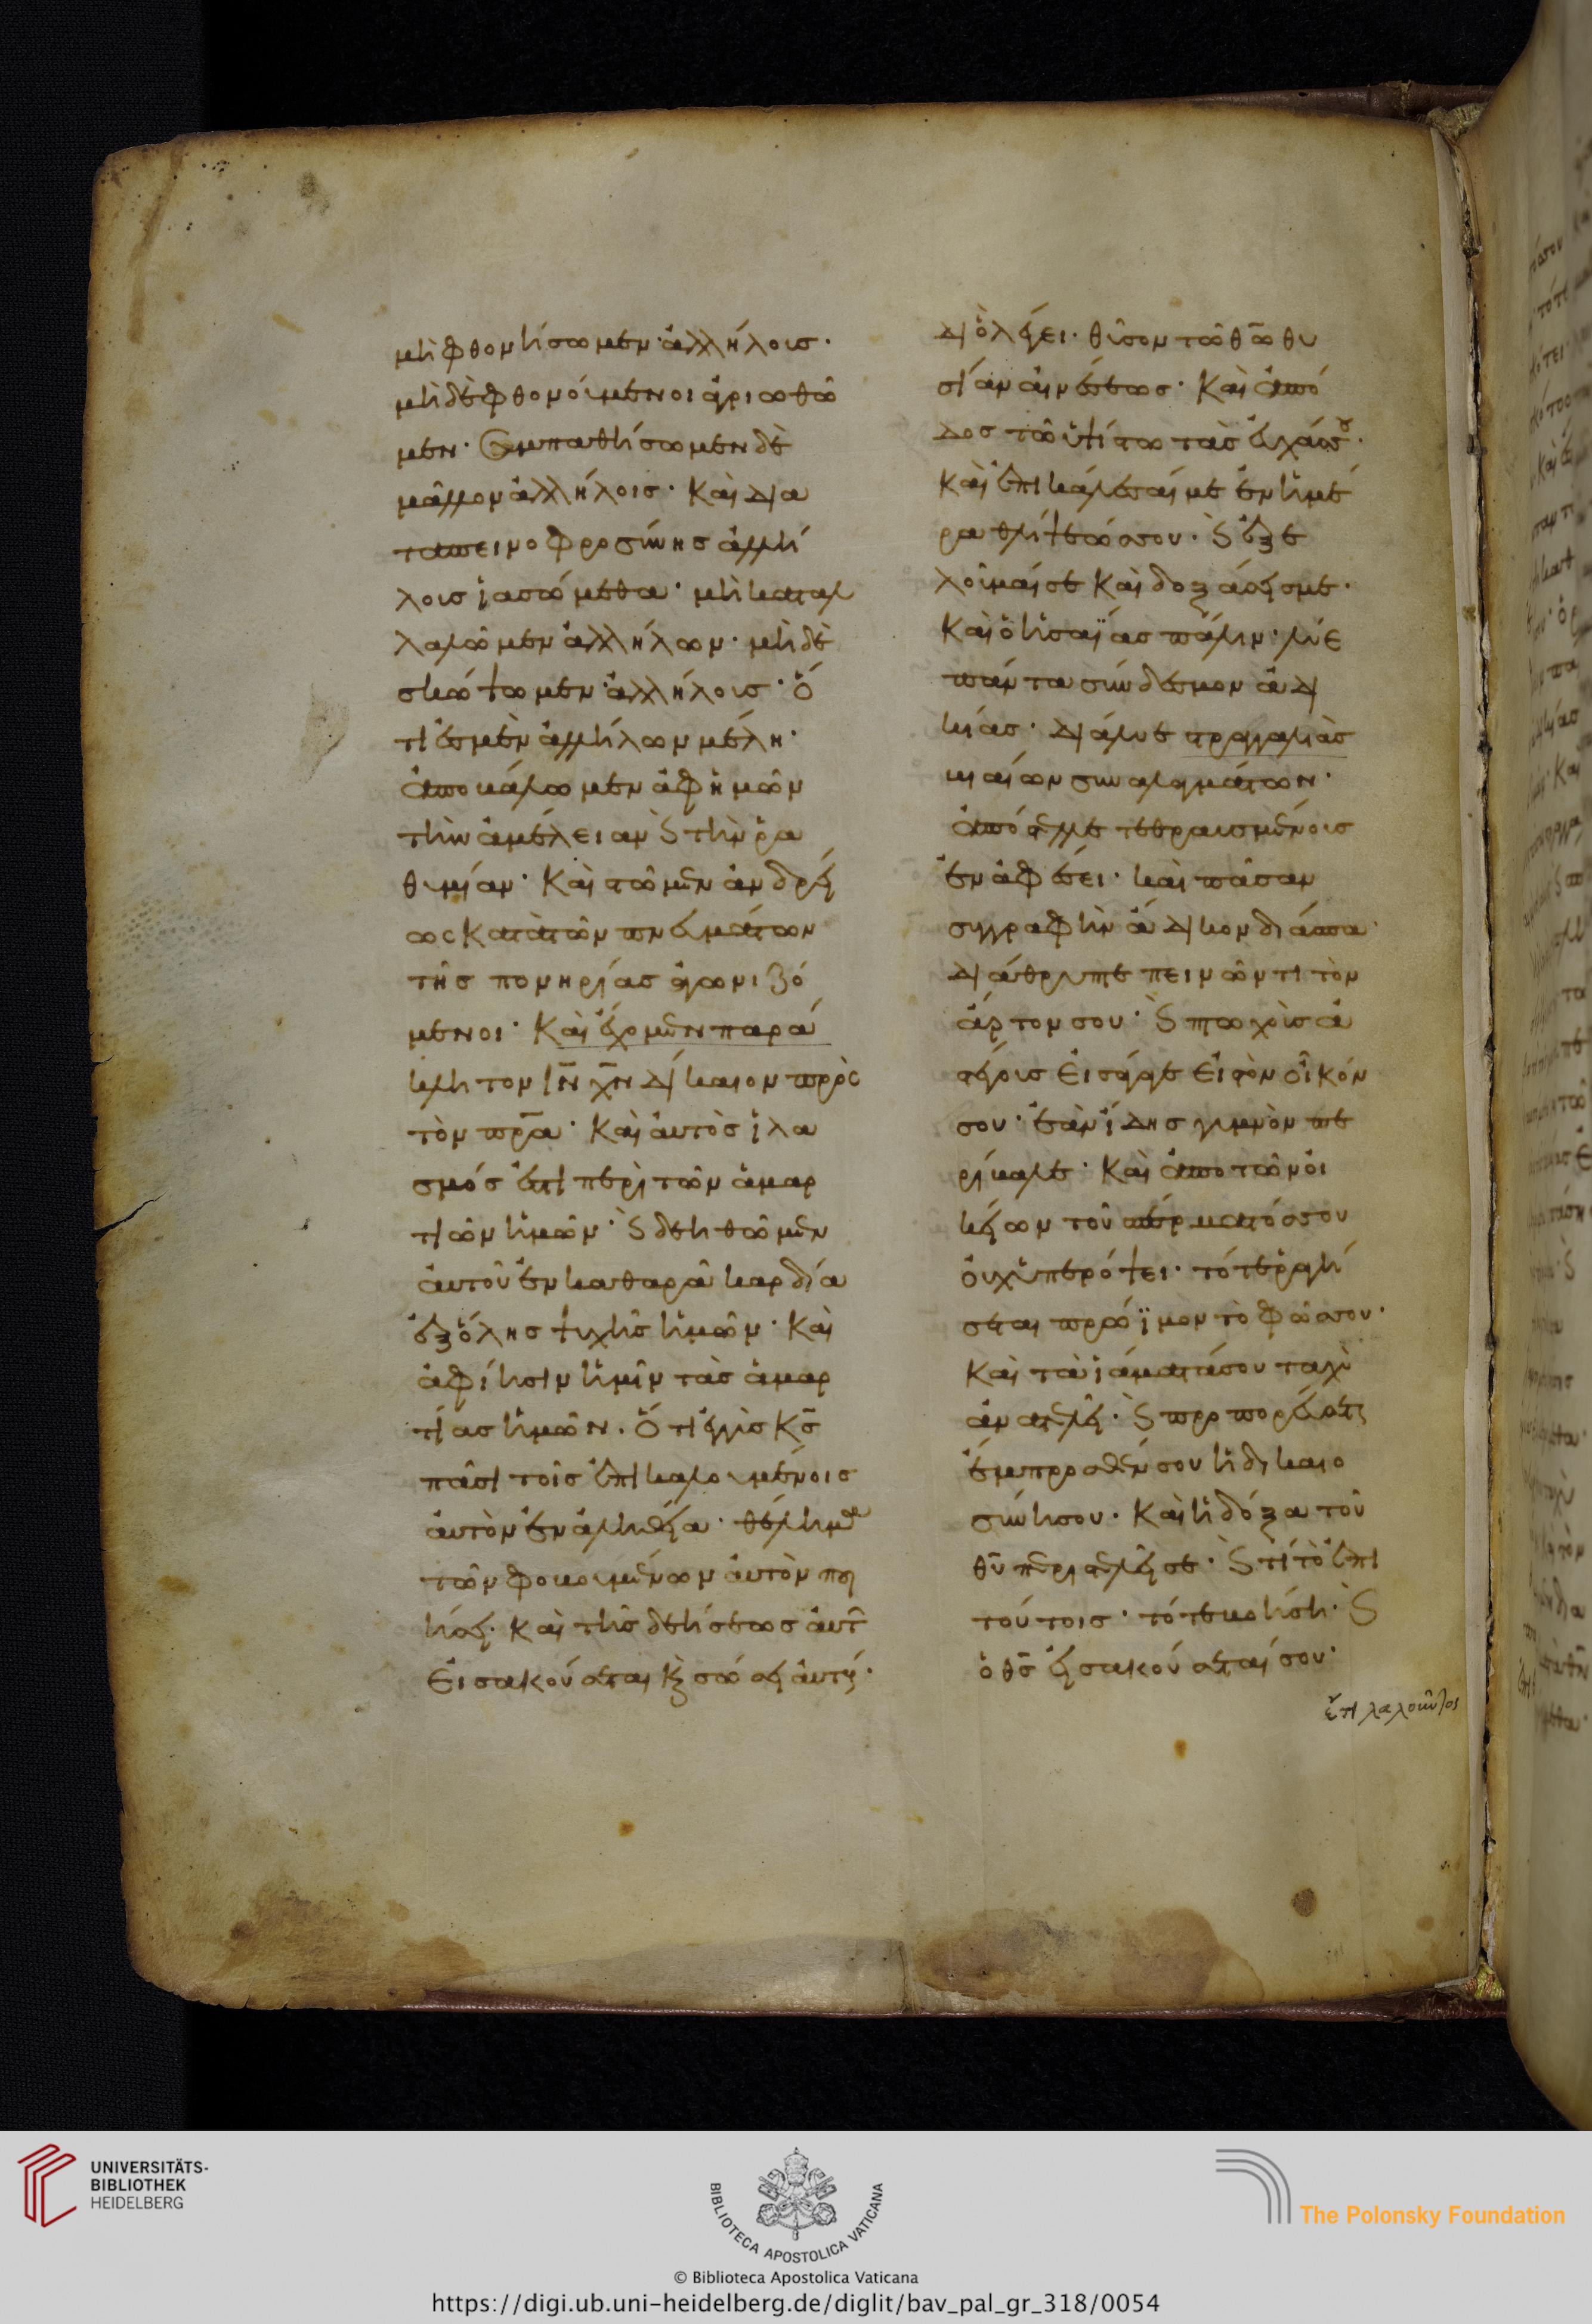 μὴ φθονήσωμεν ἀλλήλοις·
μὴ δὲ φθονούμενοι ἀγριωθῶ
μεν· Συμπαθήσωμεν δὲ
μᾶλλον ἀλλήλοις· Καὶ δια
ταπεινοφροσύνης ἀλλή
λοις ἰασώμεθα· μὴ καταλ
λαλῶμεν ἀλλήλων· μὴ δὲ
σκώψωμεν ἀλλήλοις· ὅ
τι ἐσμὲν ἀλλήλων μέλη·
ἀποβάλωμεν ἀφ ἡμῶν
τὴν ἀμέλειαν ϗ τὴν ῥα
θυμίαν· Καὶ στῶμεν ἀνδρεί
ως κατὰ τῶν πνευμάτων
τῆς πονηρίας ἀγωνιζό
μενοι· Καὶ ἔχομεν παρά
κλητον ιν χν δίκαιον πρὸς
τὸν πρα· Καὶ αὐτὸς ἱλα
σμός ἐστι περὶ τῶν ἁμαρ
τιῶν ἡμῶν· ϗ δεηθῶμεν
αὐτοῦ ἐν καθαρᾶ καρδία
ἐξ ὅλης ψυχῆς ἡμῶν· Καὶ
ἀφίησιν ἡμῖν τὰς ἁμαρ
τίας ἡμῶν. Ὅτι ἐγγὺς κς
πᾶσι τοῖς ἐπικαλουμένοις
αὐτὸν ἐν ἀληθεία· θέλημα
τῶν φοβουμένων αὐτὸν ποι
ήσει· καὶ τῆς δεήσεως αὐτ
εἰσακούσεται ϗ σώσει αὐτούς·
διὸ λέγει· θῦσον τῶ θῶ θυ
σίαν αἰνέσεως· Καὶ ἀπό
δος τῶ ὑψίστω τὰς εὐχάς σου·
Καὶ ἐπικάλεσαί με ἐν ἡμέ
ρα θλίψεώς σου· ϗ ἐξε
λοῦμαί σε καὶ δοξάσεις με·
Καὶ ὁ ἡσαΐας πάλιν· λύε
πάντα σύνδεσμον ἀδι
κίας· διάλυε στραγγαλιὰς
βιαίων συναλλαγμάτων·
ἀπόστελλε τεθραυσμένοις
ἐν ἀφέσει· καὶ πᾶσαν
συγγραφὴν ἄδικον διάσπα·
διάθρυπτε πεινῶντι τὸν
ἄρτον σου· ϗ πτωχοὺς ἀ
στέγους εἰσάγαγε εἰς τὸν οἶκόν
σου· ἐὰν ἴδης γυμνὸν πε
ρίβαλε· Καὶ ἀπο τῶν οἰ
κείων τοῦ σπέρματός σου
οὐχ ὑπερόψει· τότε ῥαγή
σεται πρώϊμον τὸ φῶς σου·
Καὶ τὰ ἰάματά σου ταχὺ
ἀνατελεῖ· ϗ προπορεύσεται
ἔμπροσθέν σου ἡ δικαιο
σύνη σου· Καὶ ἡ δόξα τοῦ
θυ περιστελεῖ σε· ϗ τί τὸ ἐπὶ
τούτοις· τότε βοήση· ϗ
ὁ θς εἰσακούσεταί σου·
ἔτι λαλοῦντος
UNIVERSITÄTS-
BIBLIOTHEK
HEIDELBERG
BIBLIOTECA APOSTOLICA VATICANA
The Polonsky Foundation
© Biblioteca Apostolica Vaticana
https://digi.ub.uni-heidelberg.de/diglit/bav_pal_gr_318/0054